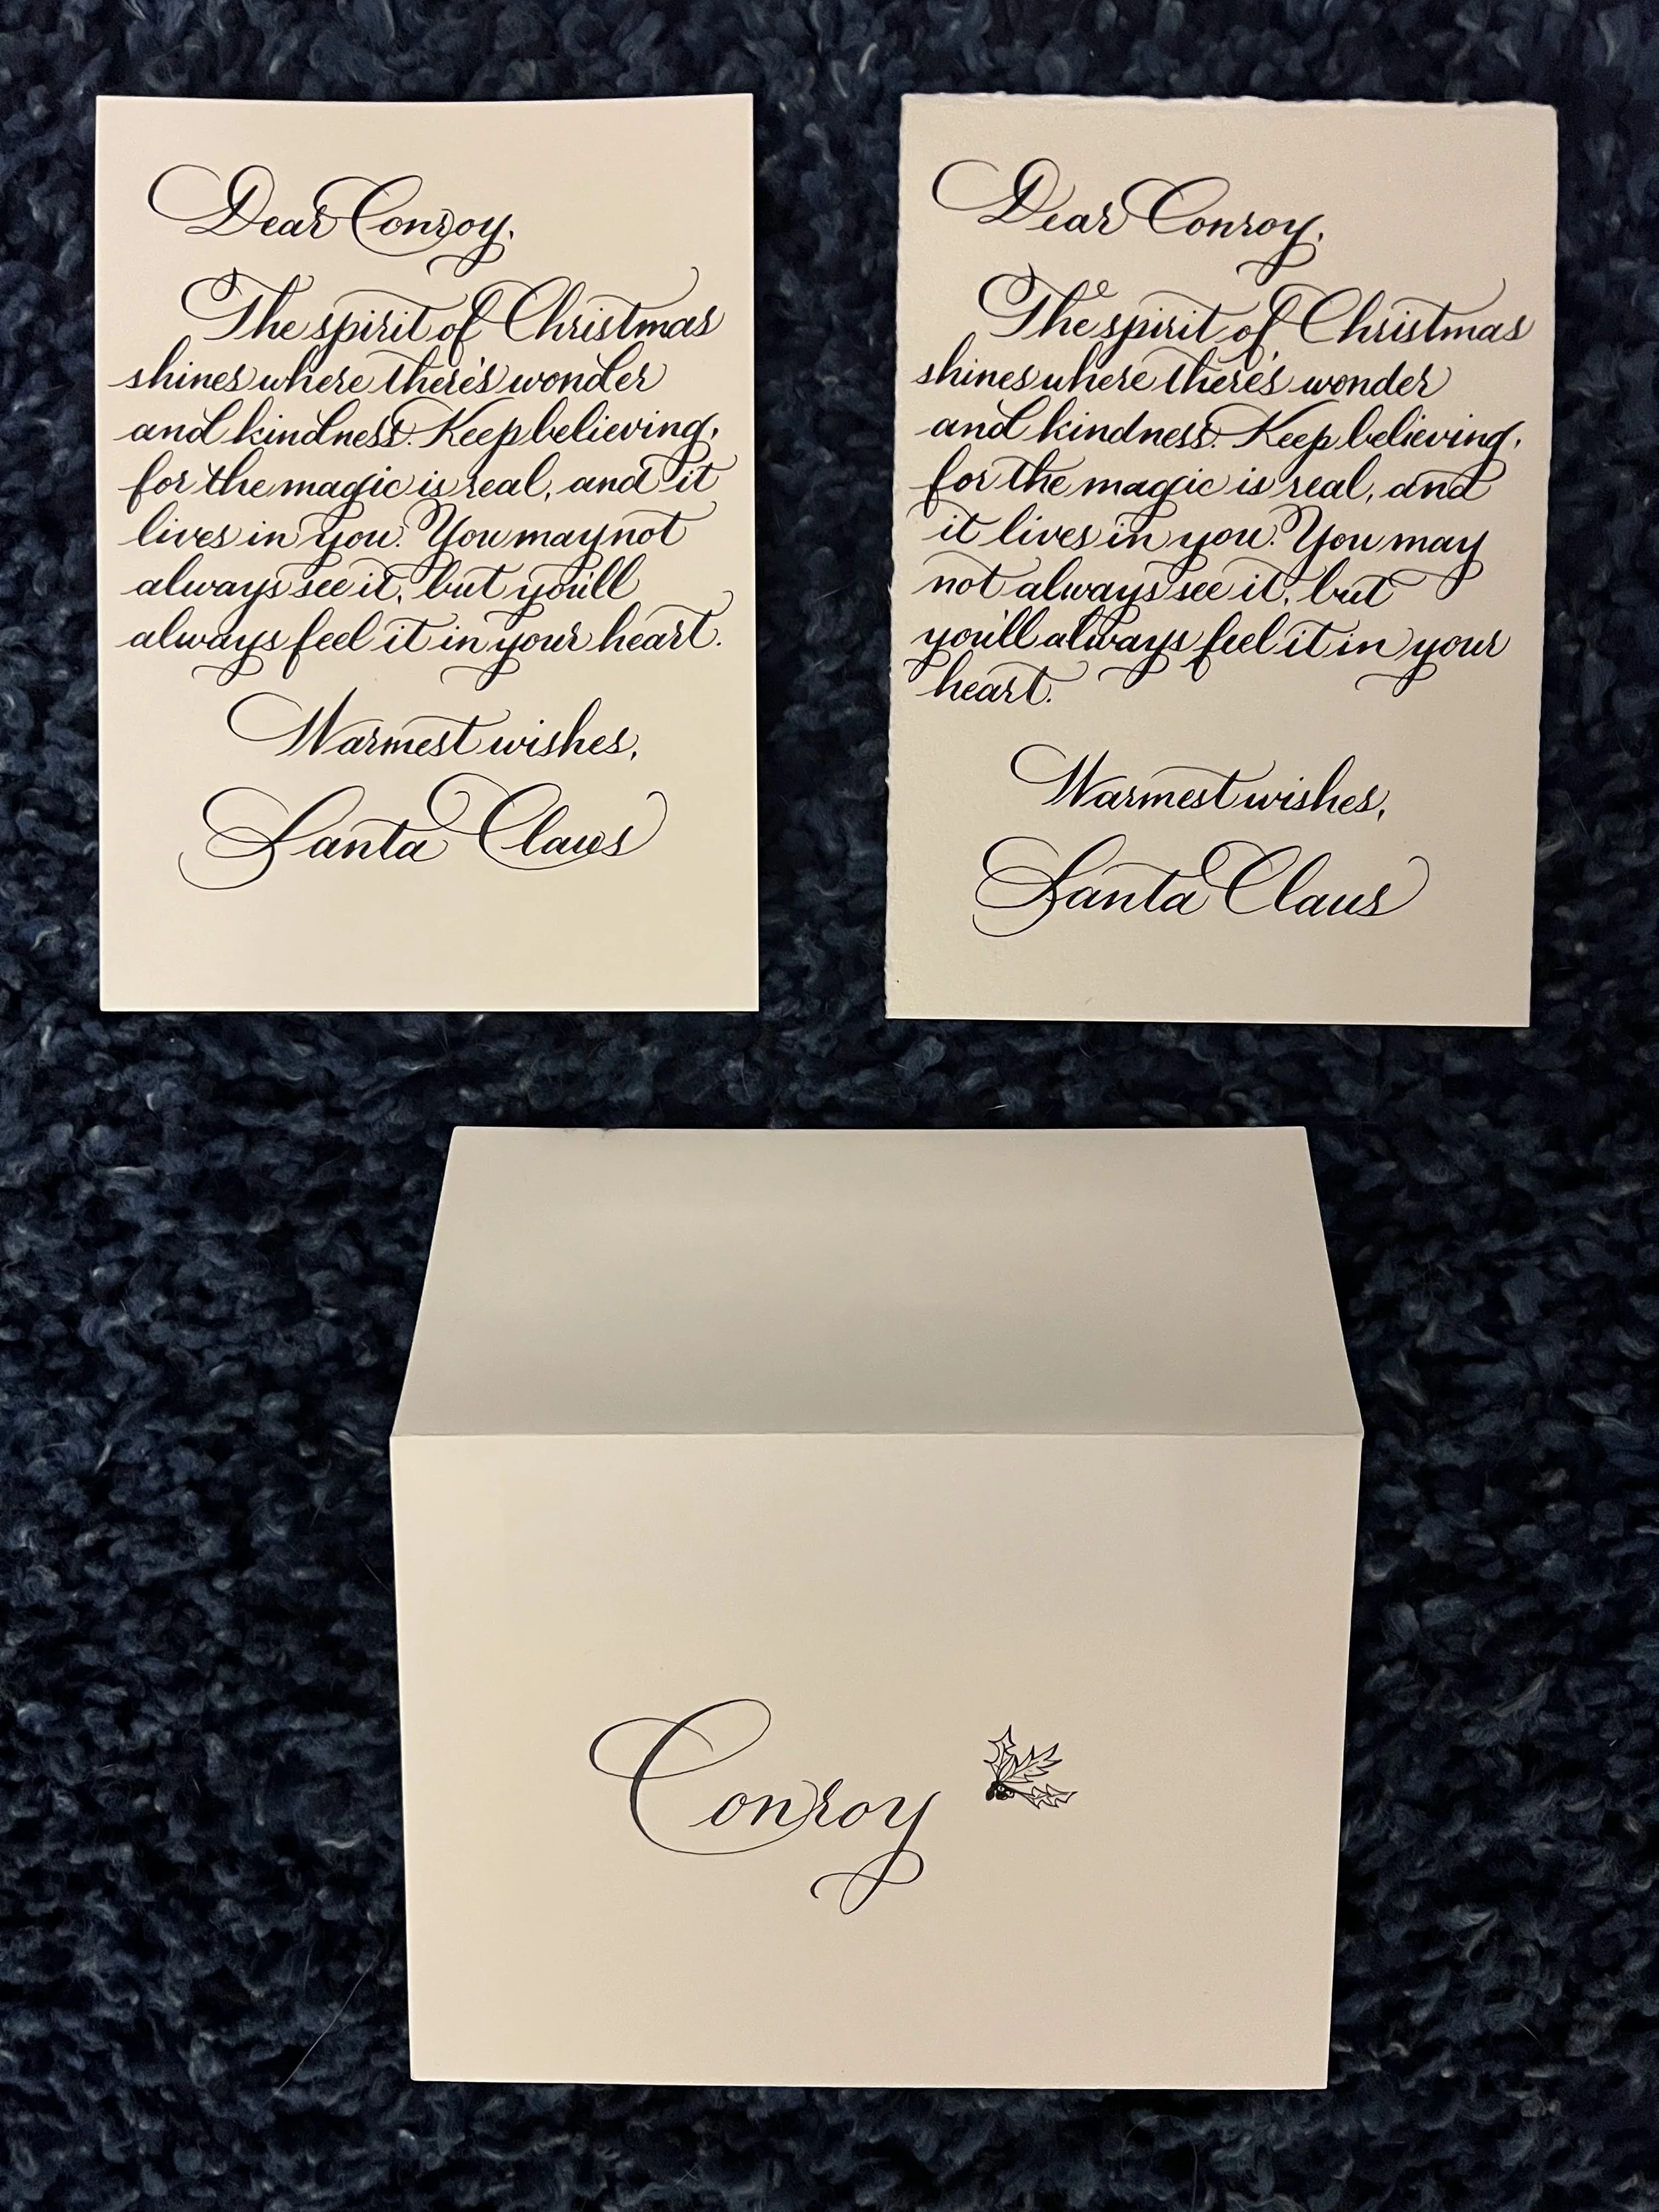 Dear Conroy,
The spirit of Christmas
shines where there's wonder
and kindness. Keep believing,
for the magic is real, and it
lives in you. You may not
always see it, but you'll
always feel it in your heart.
Warmest wishes,
Santa Claus
Dear Conroy,
The spirit of Christmas
shines where there's wonder
and kindness. Keep believing,
for the magic is real, and
it lives in you. You may
not always see it, but
you'll always feel it in your
heart.
Warmest wishes,
Santa Claus
Conroy